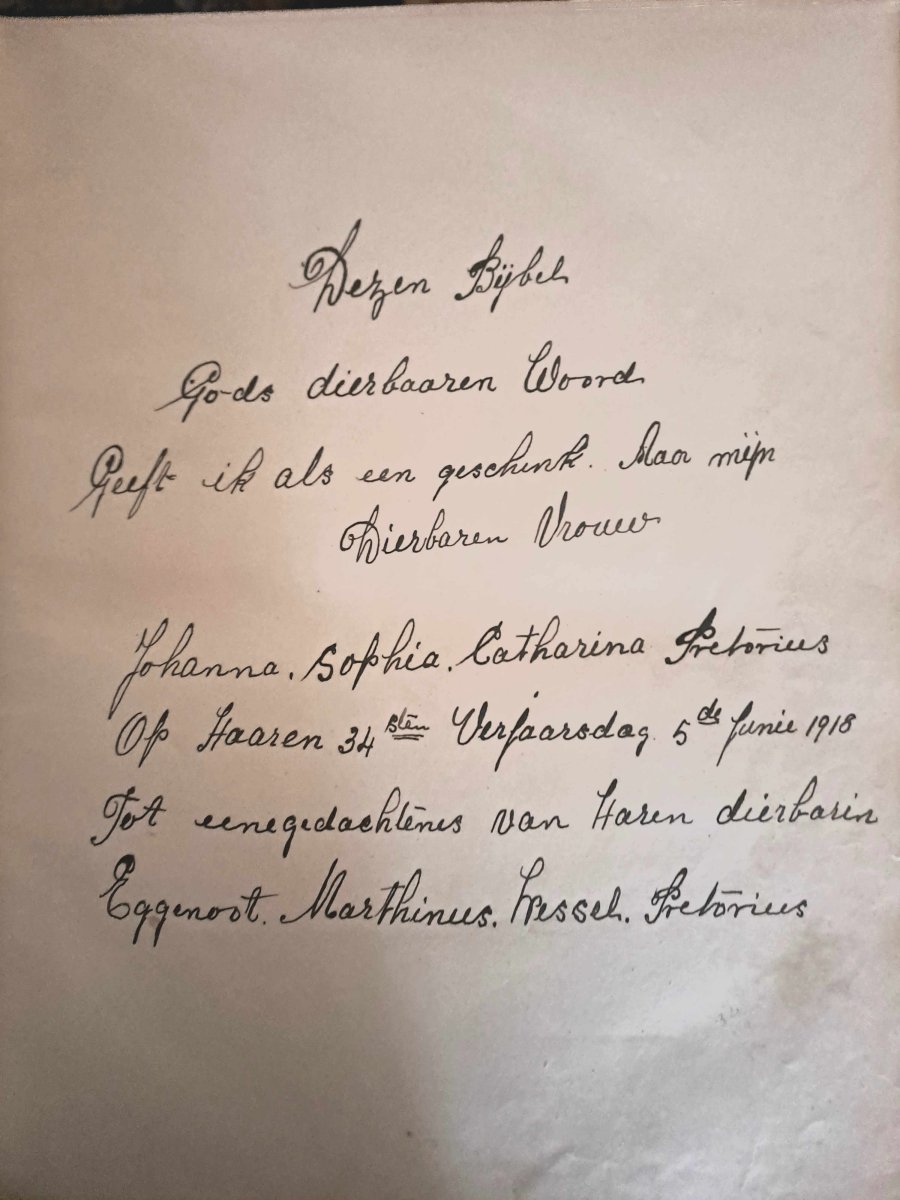 Dezen Bijbel
Gods dierbaaren Woord
Geeft ik als een geschenk. Aaa mijn
Dierbaren Vrouw
Johanna. Sophia. Catharina Pretorius
Op Haaren 34sten Verjaarsdag 5de Junie 1918
Tot eenegedachtenes van Haren dierbarin
Eggenoot. Marthinus. Wessel. Pretorius